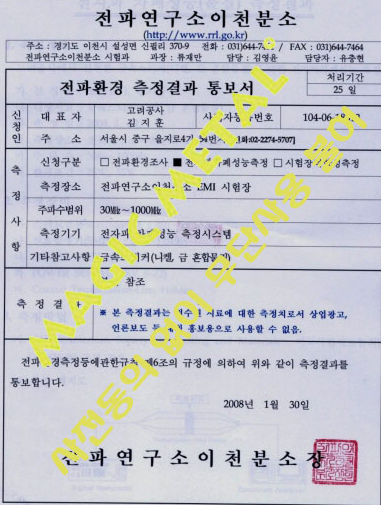 전파연구소이천분소
(http://www.rrl.go.kr)
주소 : 경기도 이천시 설성면 신필리 370-9 전화 : 031)644-7 / FAX : 031)644-7464
전파연구소이천분소 시험과 과장 : 류재만 담당 : 김영윤 담당자 : 유충현
전파환경 측정결과 통보서
처리기간
25 일
신청인
대 표 자
고려공사
김 지 훈
번호
104-06
주 소
서울시 중구 을지로4가 전화:02-2274-5707)
측정사항
신청구분
□ 전파환경조사 ■ 전 폐성능측정 □ 시험장 측정
측정장소
전파연구소이천 소 EMI 시험장
주파수범위
30㎒~1000㎒
측정기기
전자파 성능 측정시스템
기타참고사항
금속 커(니켈, 금 혼합물
측 정 결 과
참조
※ 본 측정결과는 시료에 대한 측정치로서 상업광고,
언론보도 등 홍보용으로 사용할 수 없음.
전파환경측정등에관한규칙 제6조의 규정에 의하여 위와 같이 측정결과를
통보합니다.
2008년 1월 30일
전파연구소이천분소장
MAGIC METAL
사전동의 없이 무단사용 불허